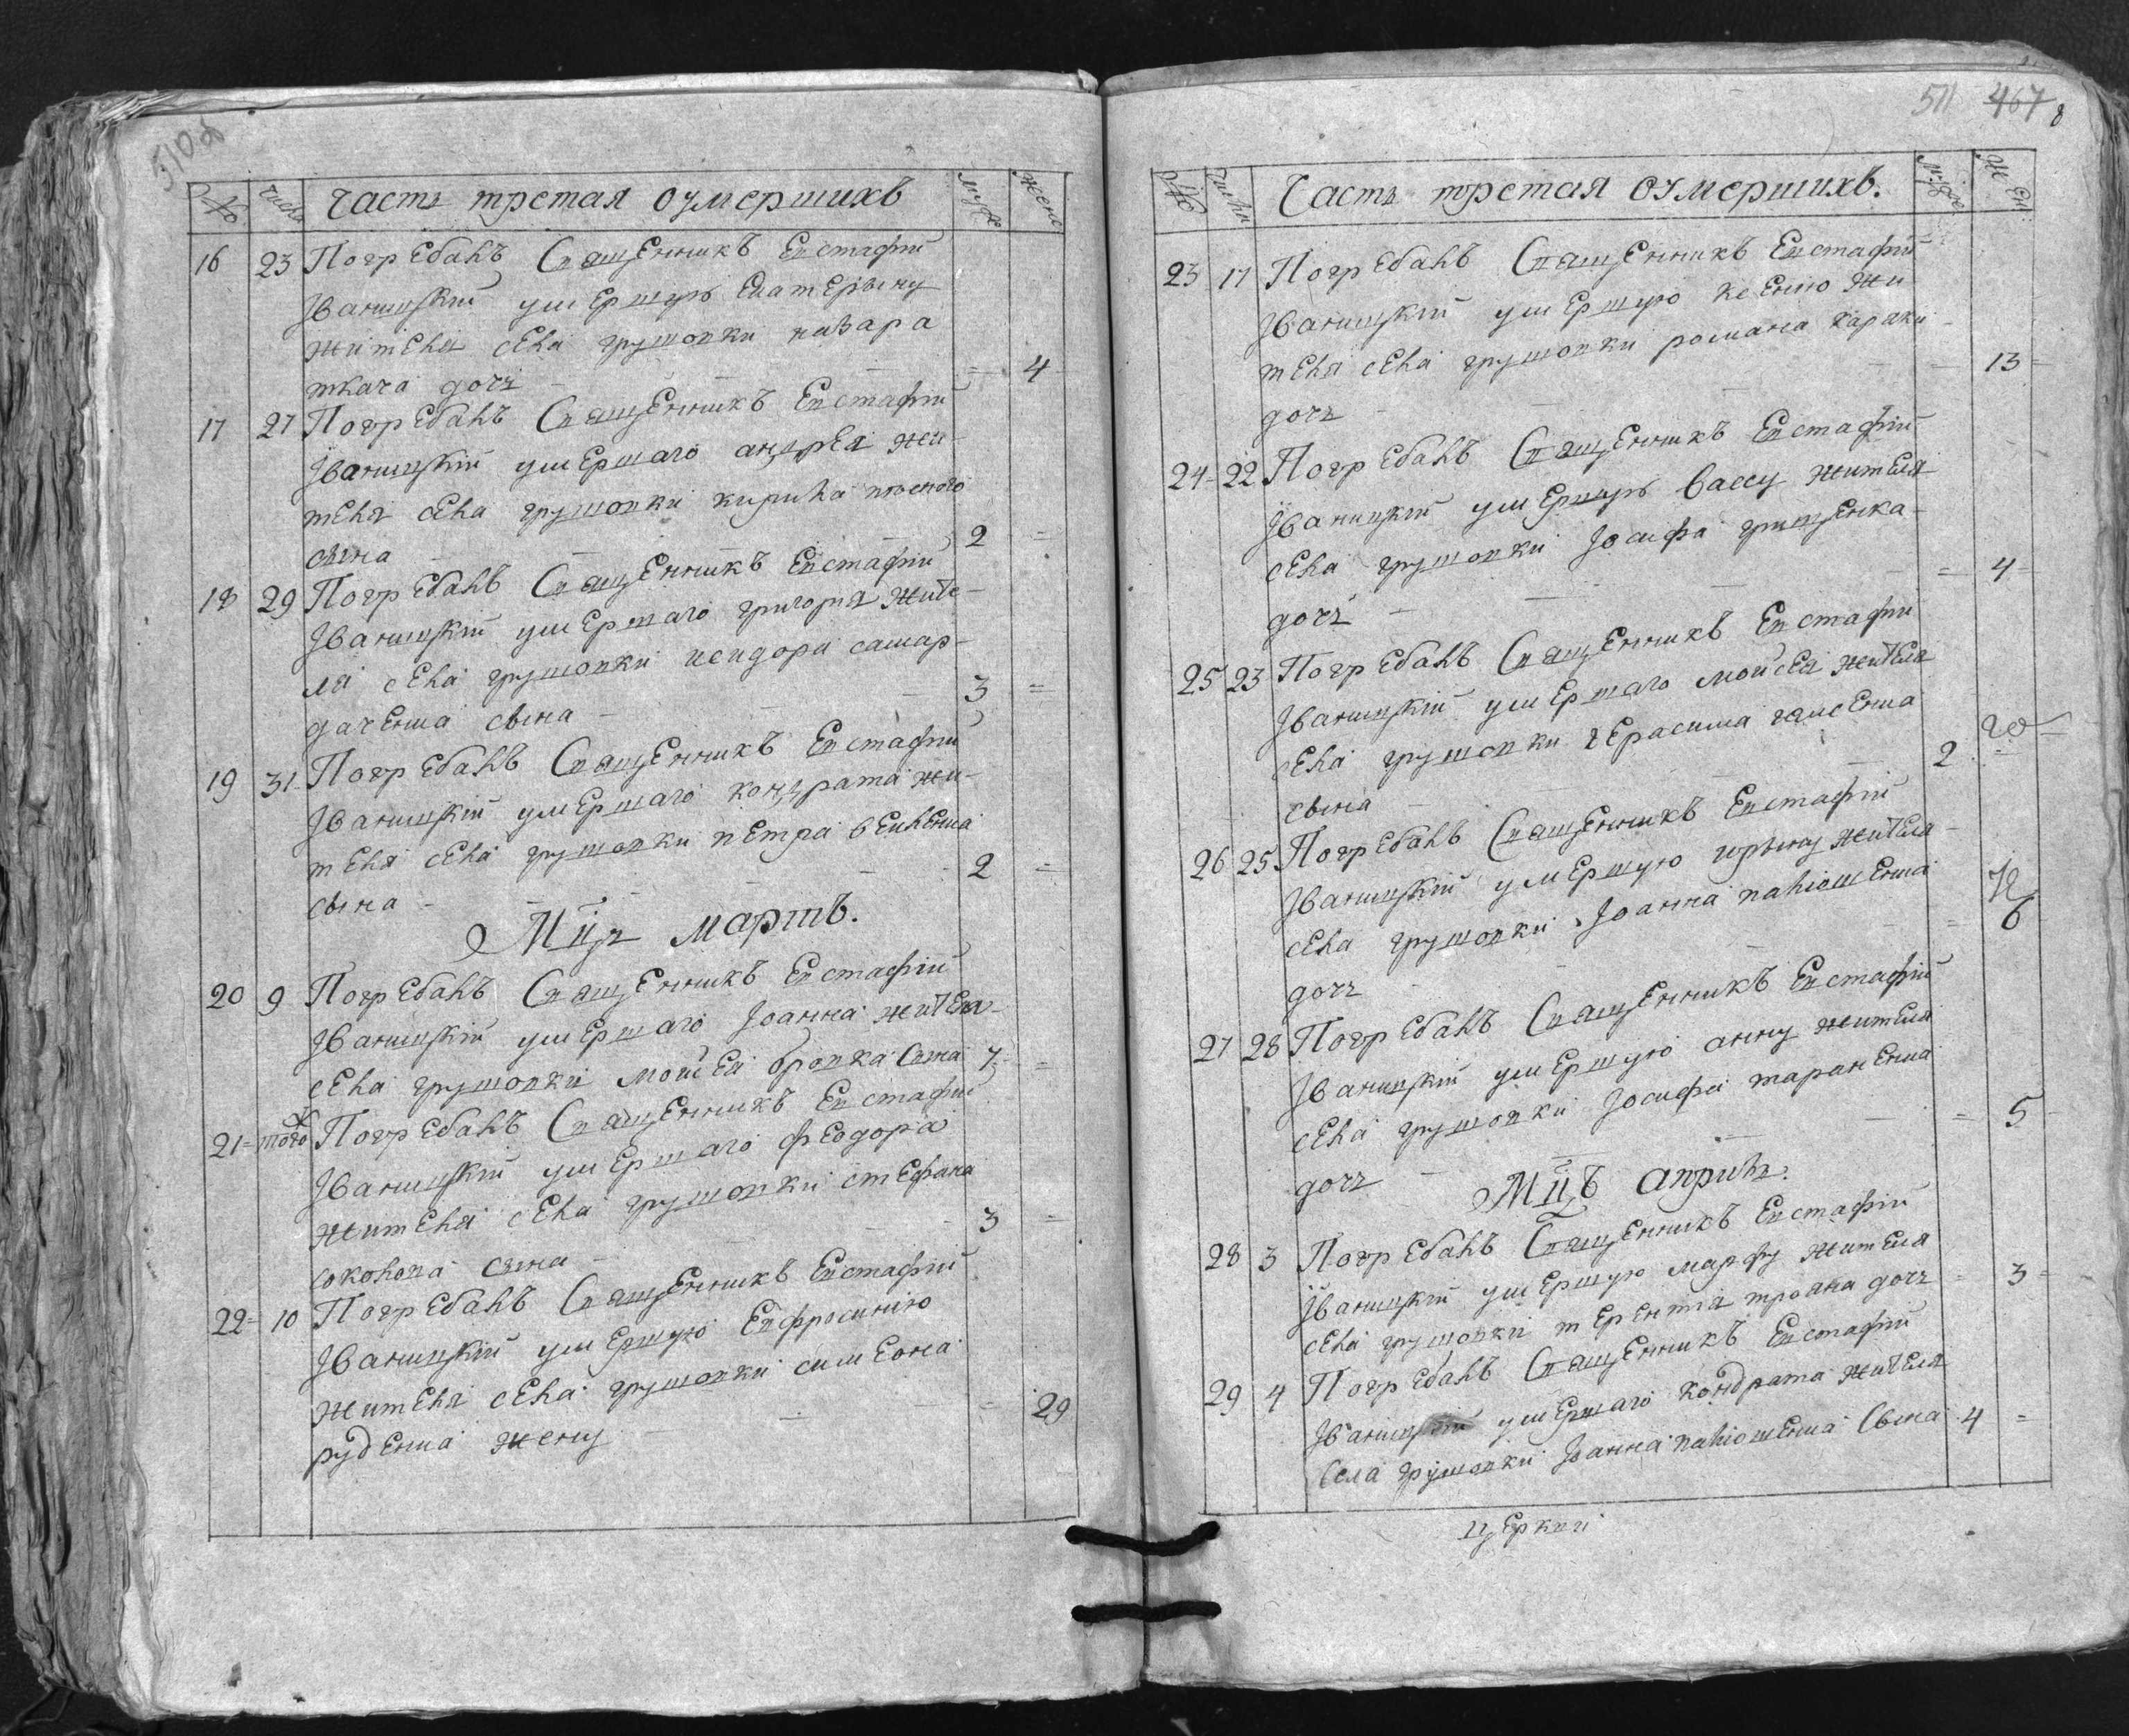 510об
№ числа Часть третая оумершихъ муже женс
16 23 Погребалъ Священникъ Евстафій
Іваницкій умершую Екатерыну
жителя села грушовки назара
ткача дочь = 4
17 27 Погребалъ Священникъ Евстафій
Іваницкій умершаго андрея жи-
теля села грушовки кирила
сына 2 =
18 29 Погребалъ Священникъ Евстафій
Іваницкій умершаго григория жите-
ля села грушовки исидора самар-
даченка сына 3 =
19 31 Погребалъ Священникъ Евстафій
Іваницкій умершаго кондрата жи-
теля села грушовки петра
сына 2 =
Мцъ мартъ.
20 9 Погребалъ Священникъ Евстафій
Іваницкій умершаго Іоанна жителя
села грушовки мойсея бровка Сына 7 =
21 = тогож Погребалъ Священникъ Евстафій
Іваницкій умершаго феодора
жителя села грушовки стефана
соколова сына 3 =
22 = 10 Погребалъ Священникъ Евстафій
Іваницкій умершую Евфросинію
жителя села грушовки симеона
руденка жену = 29
511 467
№ числа Часть третая оумершихъ. мужес жен
23 17 Погребалъ Священникъ Евстафій
Іваницкій умершую ксению жи
теля села грушовки романа
дочь 13
24 = 22 Погребалъ Священникъ Евстафій
Іваницкій умершую вассу жителя
села грушовки Іосифа грищенка
дочь = 4
25 23 Погребалъ Священникъ Евстафій
Іваницкій умершаго мойсея жителя
села грушовки герасима
сына 2
26 25 Погребалъ Священникъ Евстафій
Іваницкій умершую ирыну жителя
села грушовки Іоанна палюшенка
дочь = 6
27 28 Погребалъ Священникъ Евстафій
Іваницкій умершую анну жителя
села грушовки Іосифа тараненка
дочь = 5
Мцъ априль.
28 3 Погребалъ Священникъ Евстафій
Іваницкій умершую марфу жителя
села грушовки терентія трояна дочь = 3
29 4 Погребалъ Священникъ Евстафій
Іваницкій умершаго кондрата жителя
села грушовки Іоанна палюшенка Сына 4 =
церкви